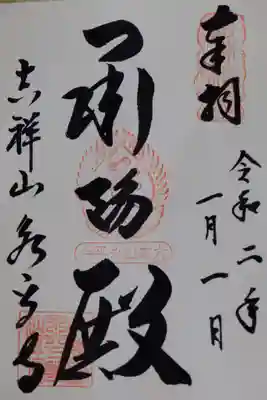 奉拝
令和二年
一月一日
承陽殿
吉祥山永平寺